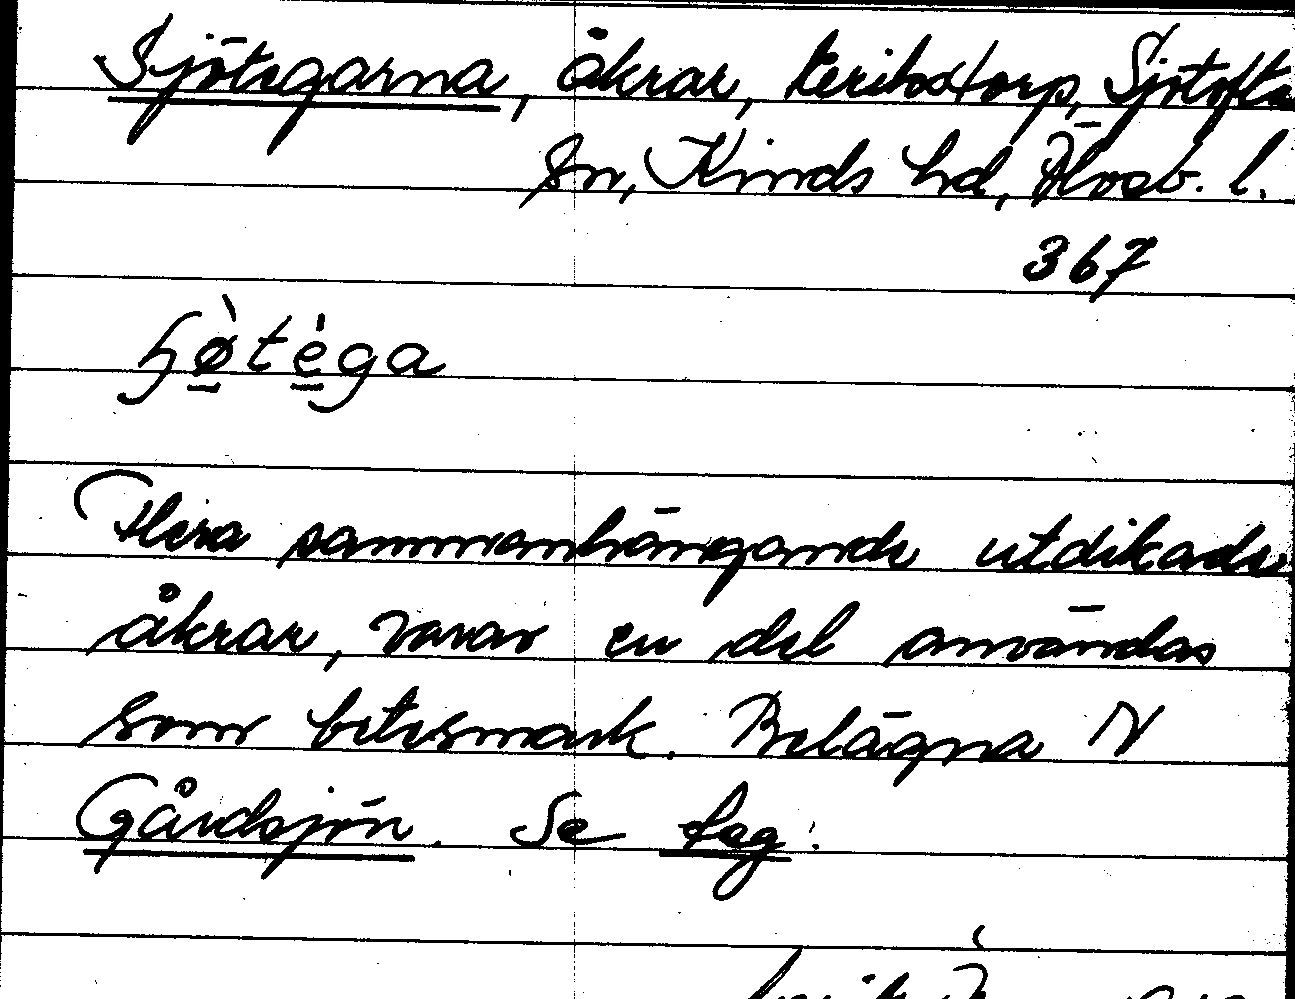 Sjötegarna, åkrar, Sjötofta
sn, Kinds hd, Älvsb. l.
367
ɧø̠̀te̠̍ga
Flera sammanhängande utdikade
åkrar, varav en del användas
som betesmark. Belägna N
Gårdsjön. Se teg.